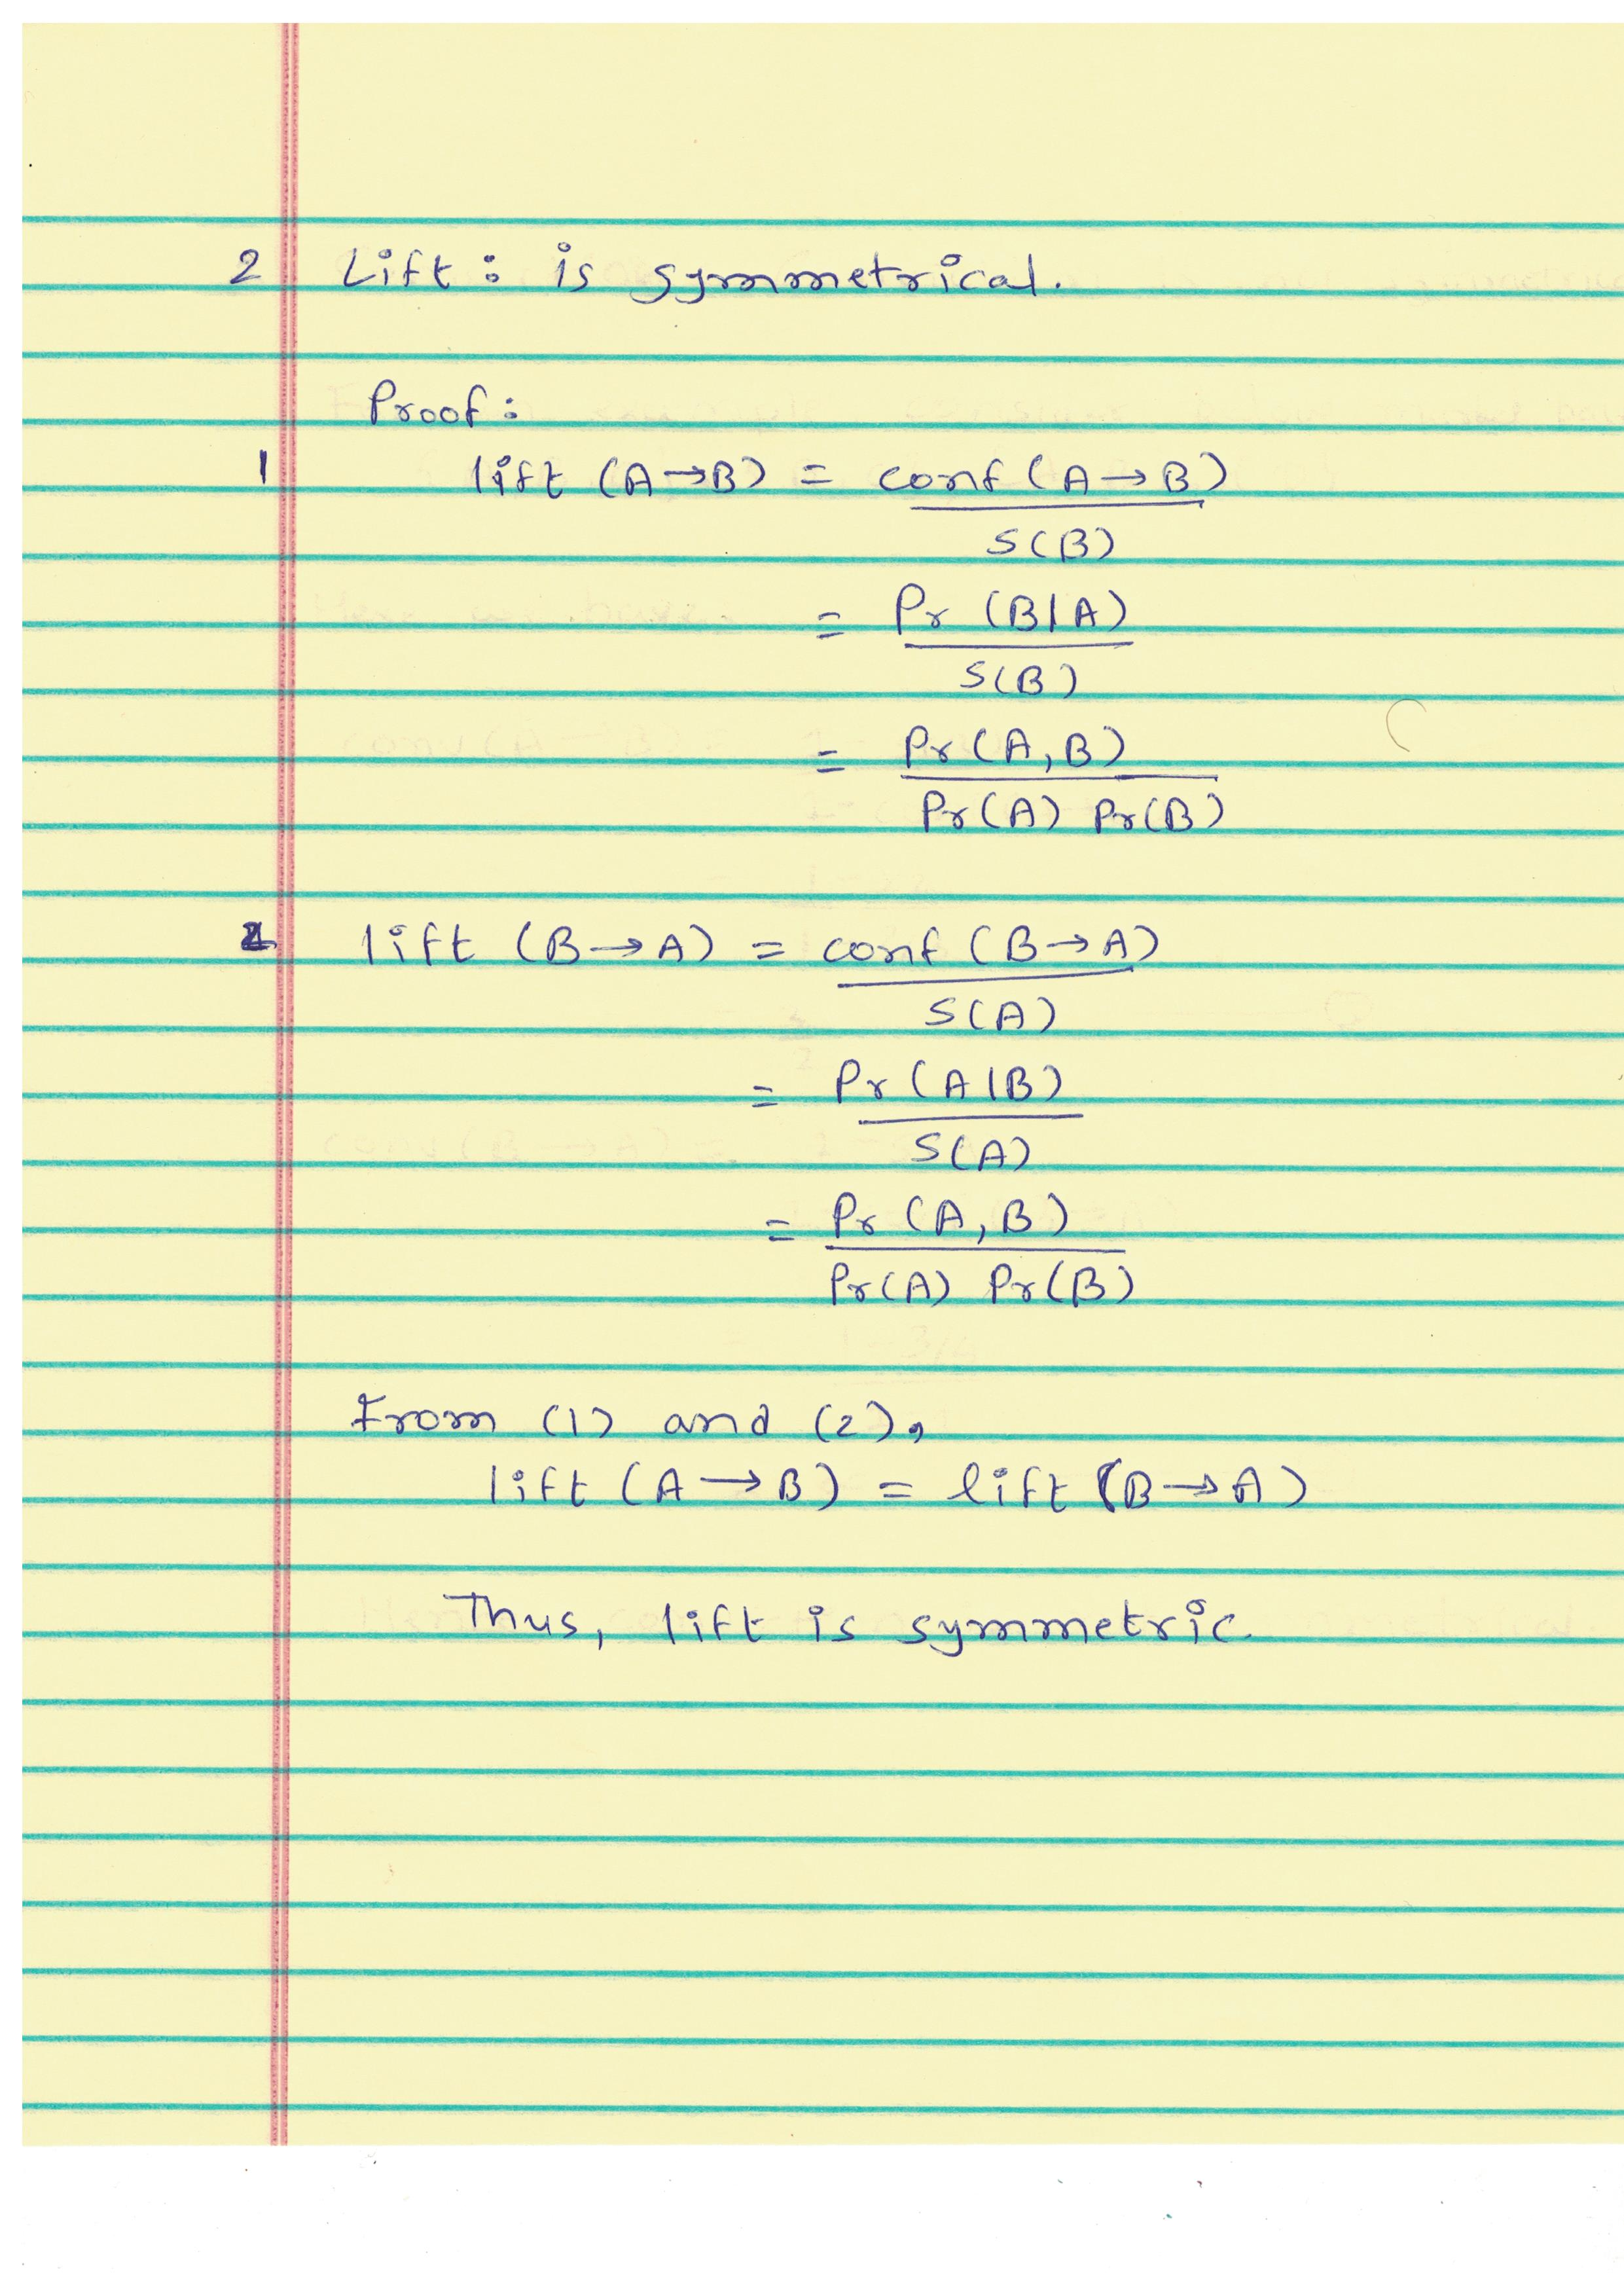 2 Lift: is symmetrical.
Proof:
1 lift (A→B) = conf (A→B)
S(B)
= Pr (B|A)
S(B)
= Pr(A,B)
Pr(A) Pr(B)
2 lift (B→A) = conf (B→A)
S(A)
= Pr(A|B)
S(A)
= Pr (A,B)
Pr(A) Pr(B)
From (1) and (2),
lift (A→B) = lift (B→A)
Thus, lift is symmetric